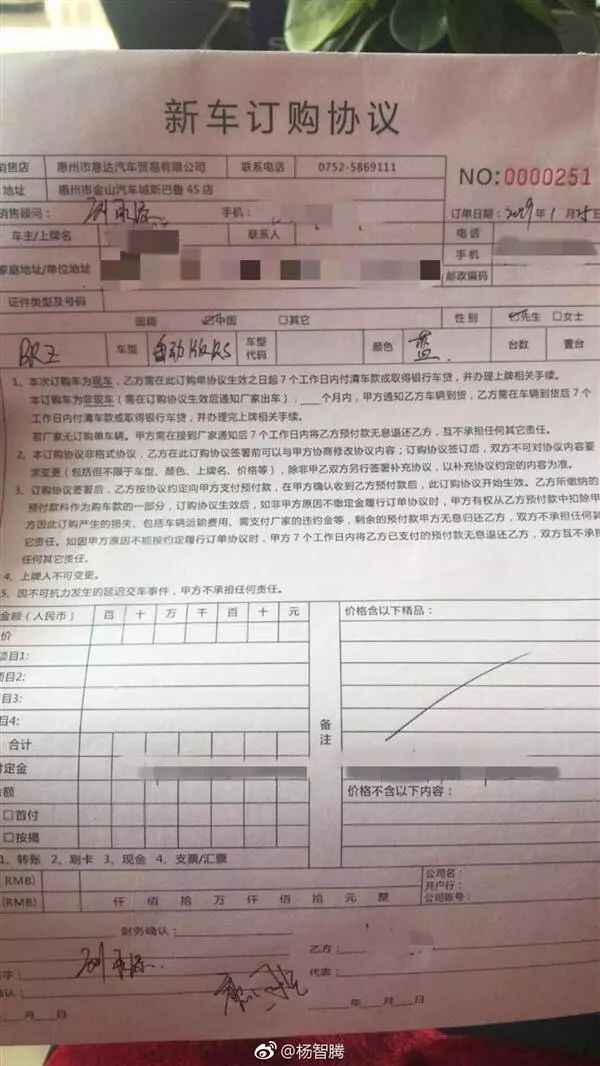 新车订购协议
销售店 惠州市意达汽车贸易有限公司 联系电话 0752-5869111
NO:0000251
地址 惠州市金山汽车城斯巴鲁4S店
销售顾问： 手机： 订单日期：2019年1月25日
车主/上牌名 联系人 电话
家庭地址/单位地址 手机
邮政编码
证件类型及号码
国籍 ☑中国 □其它 性别 ☑先生 □女士
BRZ 车型 自动 RS 车型代码 颜色 蓝 台数 壹台
1、本次订购车为现车，乙方需在此订购单协议生效之日起7个工作日内付清车款或取得银行车贷，并办理上牌相关手续。
本次订购车为非现车（需在订购协议生效后通知厂家出车），____个月内，甲方通知乙方车辆到货，乙方需在车辆到货后7个
工作日内付清车款或取得银行车贷，并办理完上牌相关手续。
若厂家无订购单车辆。甲方需在接到厂家通知后7个工作日内将乙方预付款无息退还乙方，互不承担任何其它责任。
2、本订购协议非格式协议，乙方在此订购协议签署前可以与甲方协商修改协议内容；订购协议签订后，双方不可对协议内容要
求变更（包括但不限于车型、颜色、上牌名、价格等），除非甲乙双方另行签署补充协议，以补充协议约定的内容为准。
3、订购协议签署后，乙方按协议约定向甲方支付预付款，在甲方确认收到乙方预付款后，此订购协议开始生效。乙方所缴纳的
预付款料作为购车款的一部分，订购协议生效后，如非甲方原因不缴定金履行订单协议时，甲方有权从乙方预付款中扣除甲
方因此订购产生的损失、包括车辆运输费用、需支付厂家的违约金等，剩余的预付款甲方无息归还乙方，双方不承担任何其
它责任。如因甲方原因不能按约定履行订单协议时，甲方7个工作日内将乙方已支付的预付款无息退还乙方，双方互不承担
任何其它责任。
4、上牌人不可变更。
5、因不可抗力发生的延迟交车事件，甲方不承担任何责任。
金额（人民币） 百 十 万 千 百 十 元 价格含以下精品：
价
项目1:
项目2:
项目3:
项目4:
备注
合计
付定金
金额 价格不含以下内容：
□首付
□按揭
1、转账 2、刷卡 3、现金 4、支票/汇票
RMB) 公司名：
开户行：
(RMB) 仟 佰 拾 万 仟 佰 拾 元 整 公司账号：
财务确认：
乙方：
字 代表：
确认：
年 月 日 年 月 日
@杨智腾